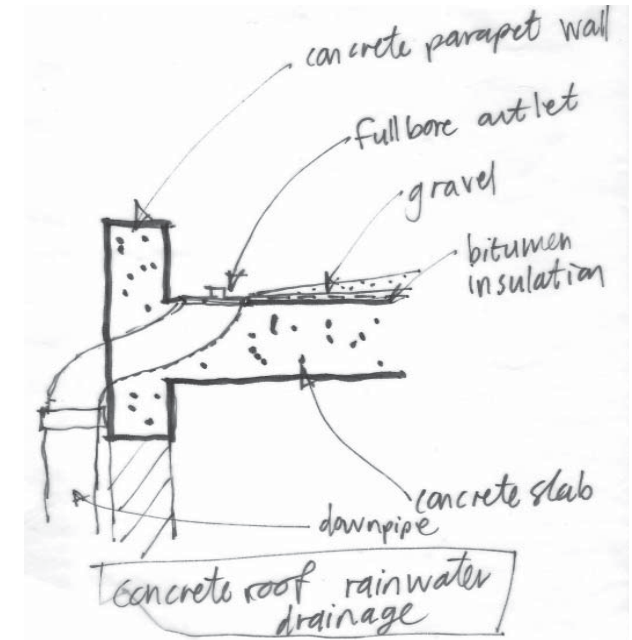 concrete parapet wall
full bore outlet
gravel
bitumen
insulation
concrete slab
downpipe
concrete roof rainwater
drainage